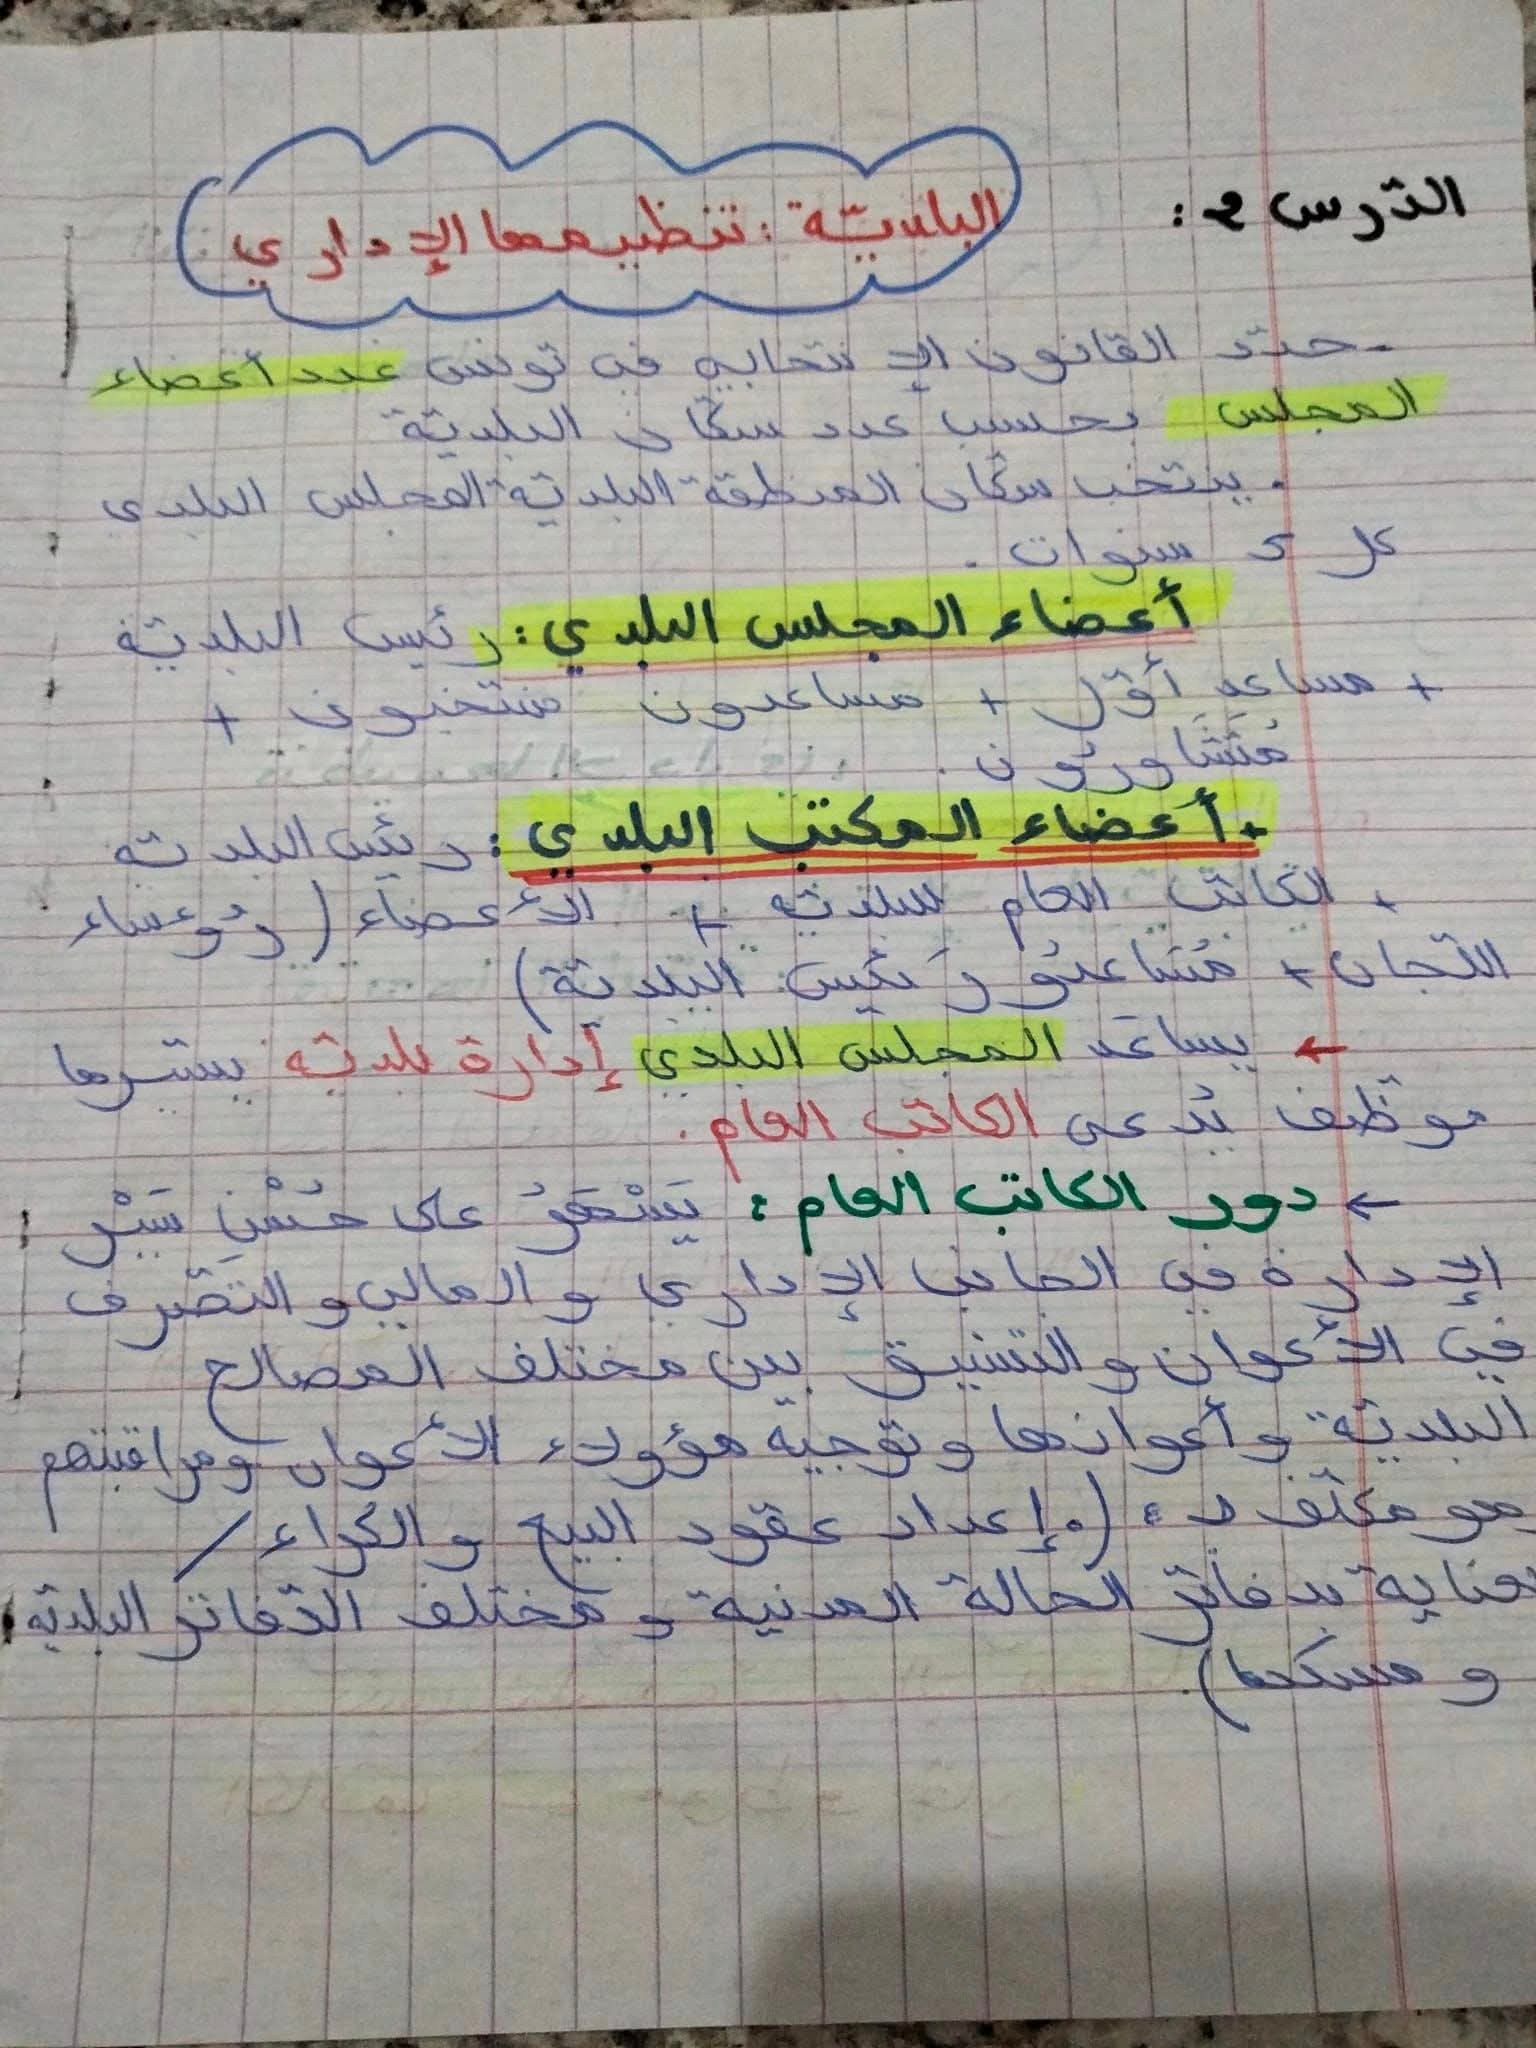 الدّرس 2:
البلديّة: تنظيمها الإداري
- حدّد القانون الإنتخابي في تونس عدد أعضاء
المجلس بحسب عدد سكّان البلديّة
. ينتخب سكّان المنطقة البلديّة المجلس البلدي
كل 5 سنوات.
أعضاء المجلس البلدي: رئيس البلديّة
+ مساعد أوّل + مساعدون منتخبون +
مُتَشَاورُون.
+ أعضاء المكتب البلدي: رئيس البلديّة
+ الكاتب العام للبلديّة + الأعضاء (رُؤساء
اللّجان + مُسَاعدُو رَئيس البلديّة)
← يساعد المجلس البلدي إدارة بلديّة يسيّرها
موظّف يُدعى الكاتب العام.
← دور الكاتب العام: يَسْهَرُ على حُسْنِ سَيْرِ
الإدارة في الجانب الإداري والمالي والتصّرف
في الأعوان والتنسيق بين مختلف المصالح
البلديّة وأعوانها وتوجيه هؤولاء الأعوان ومراقبتهم
وهو مكلّف بـ: (. إعداد عقود البيع والكراء /
عناية بدفاتر الحالة المدنية و مختلف الدّفاتر البلديّة
و مسكها).